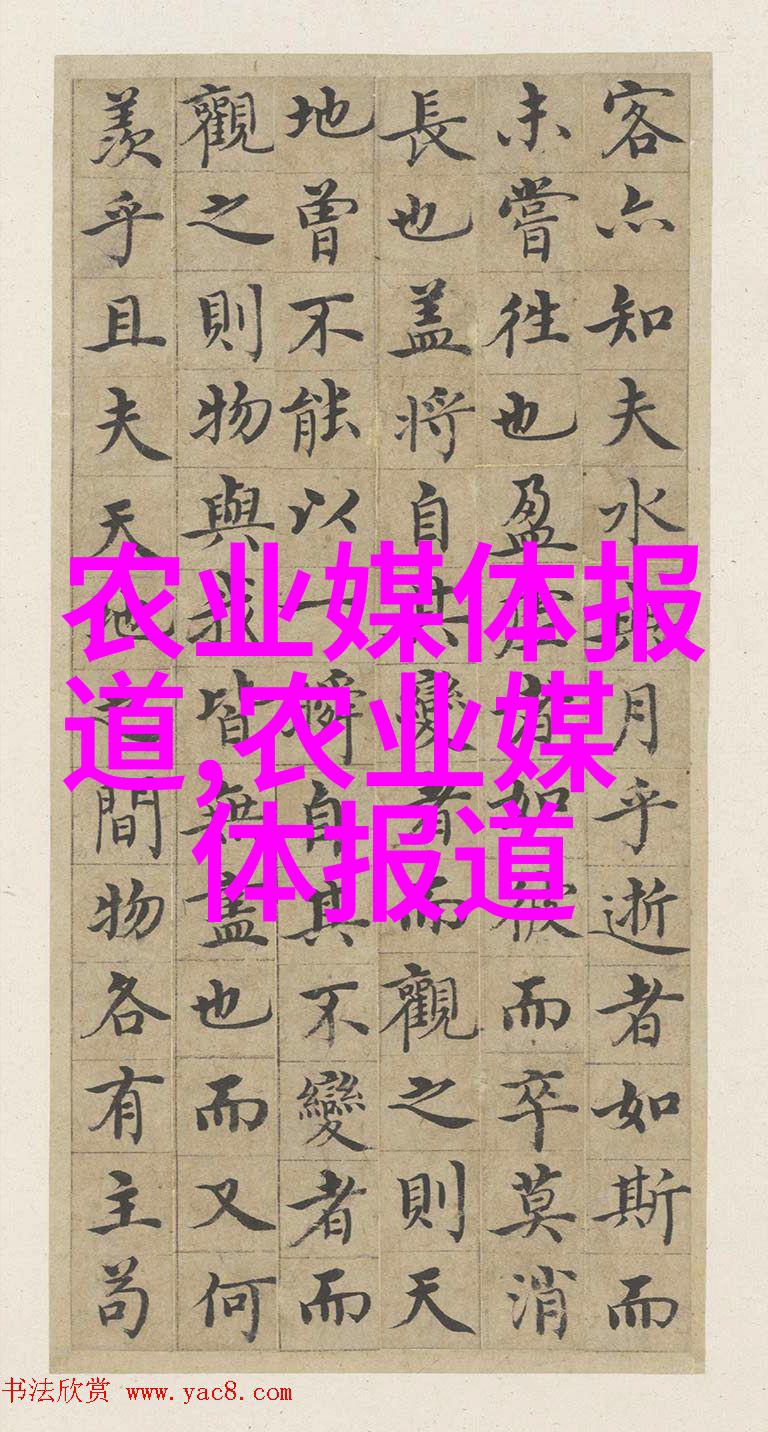 客亦知夫水月乎逝者如斯而
未嘗往也盈者如彼而卒莫消
長也盖將自其變者而觀之則天
地曾不能以一瞬自其不變者而
觀之則物與我皆無盡也而又何
羨乎且夫天地之間物各有主苟
农业媒体报
道,农业媒
体报道
书法欣赏 www.yac8.com